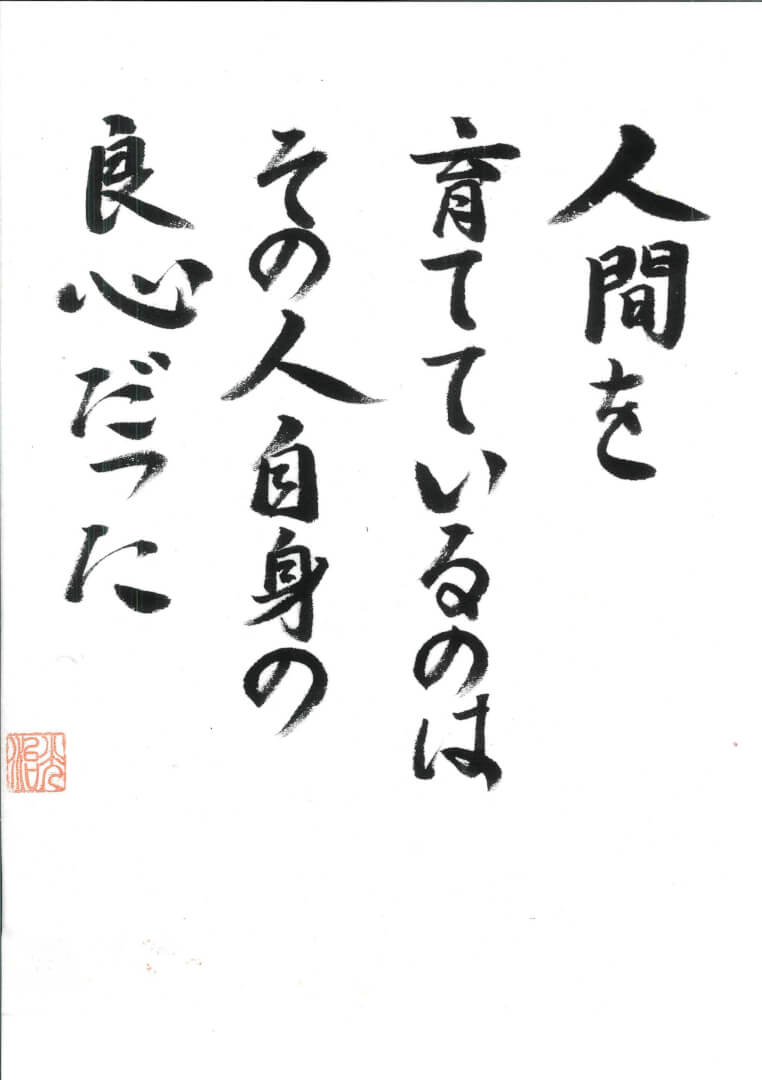 人間を
育てているのは
その人自身の
良心だった